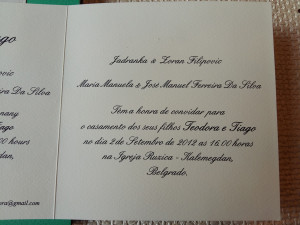 ago
Jadranka & Zoran Filipovic
ovic
Maria Manuela & José Manuel Ferreira Da Silva
ira Da Silva
Têm a honra de convidar para
o casamento dos seus filhos Teodora e Tiago
no dia 2 de Setembro de 2012 as 16.00 horas
.00 hours
na Igreja Ruzica - Kalemegdan,
gdan,
Belgrado.
ora@gmail.com